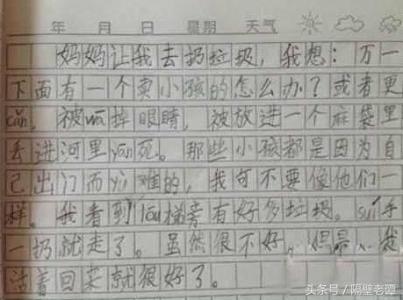 年 月 日 星期 天气
妈妈让我去扔垃圾,我想:万一
下面有一个卖小孩的怎么办?或者更
cǎn,被wā掉眼睛,被放进一个麻袋里
丢进河里yān死。那些小孩都是因为自
己出门而yù难的,我可不要像他们一
样。我看到lóu梯旁有好多垃圾。suí手
一扔就走了。虽然很不好。但是、我
活着回来就很好了。
头条号 / 隔壁老谭